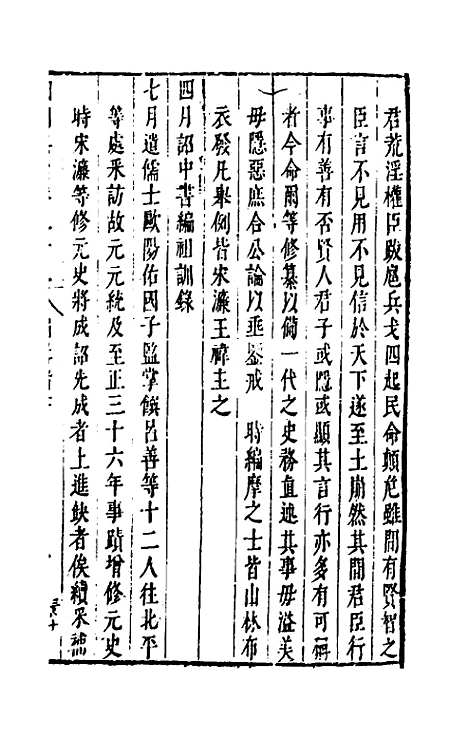 君荒淫權臣跋扈兵戈四起民命顛危雖間有賢智之
臣言不見用不見信於天下遂至土崩然其間君臣行
事有善有否賢人君子或隱或顯其言行亦多有可稱
者今命爾等修纂以備一代之史務直述其事毋溢美
毋隱惡庶合公論以垂鑒戒 時編摩之士皆山林布
衣發凡舉例皆宋濂王禕主之
四月詔中書編祖訓錄
七月遣儒士歐陽佑國子監掌饌呂善等十二人往北平
等處采訪故元元統及至正三十六年事蹟增修元史
時宋濂等修元史將成詔先成者上進缺者俟續采補